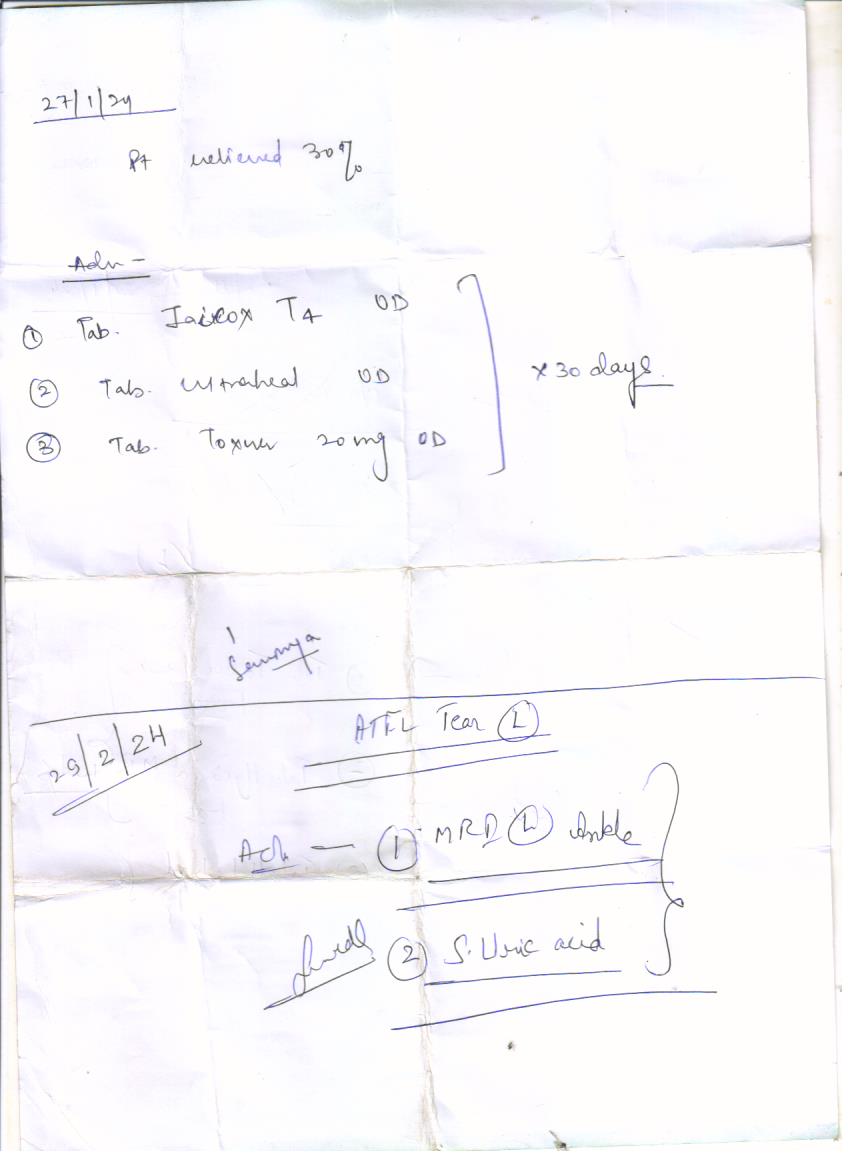 27/1/24
Pt relieved 30%
Adv -
① Tab. T4 OD
② Tab. Ultraheal OD
③ Tab. 20mg OD
x 30 days.
Saumya
29/2/24
ATFL Tear Ⓛ
Adv — ① MRI Ⓛ Ankle
② S. Uric acid